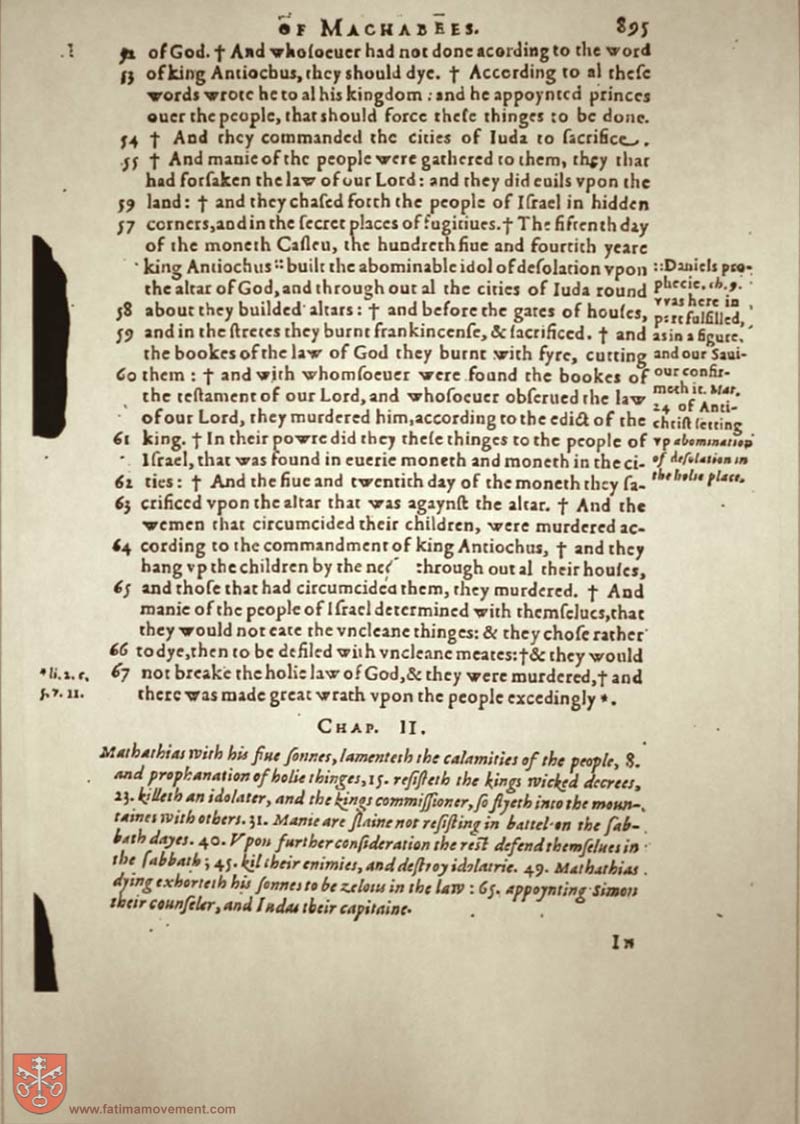 OF MACHABEES. 895
52 of God. † And whoſoeuer had not done acording to the word
53 of king Antiochus, they should dye. † According to al theſe
words wrote he to al his kingdom: and he appoynted princes
ouer the people, that should force theſe thinges to be done.
54 † And they commanded the cities of Iuda to ſacrifice.
55 † And manie of the people were gathered to them, they that
had forſaken the law of our Lord: and they did euils vpon the
59 land: † and they chaſed forth the people of Iſrael in hidden
57 corners, and in the ſecret places of fugitiues. † The fiftenth day
of the moneth Caſleu, the hundreth fiue and fourtith yeare
king Antiochus :: built the abominable idol of deſolation vpon
the altar of God, and through out al the cities of Iuda round
58 about they builded altars: † and before the gates of houſes,
59 and in the ſtretes they burnt frankincenſe, & ſacrificed. † and
the bookes of the law of God they burnt with fyre, cutting
60 them: † and with whomſoeuer were found the bookes of
the teſtament of our Lord, and whoſoeuer obſerued the law
of our Lord, they murdered him, according to the edict of the
61 king. † In their powre did they theſe thinges to the people of
Iſrael, that was found in euerie moneth and moneth in the ci-
62 ties: † And the fiue and twentith day of the moneth they ſa-
63 crificed vpon the altar that was agaynſt the altar. † And the
wemen that circumcided their children, were murdered ac-
64 cording to the commandment of king Antiochus, † and they
hang vp the children by the through out al their houſes,
65 and thoſe that had circumcided them, they murdered. † And
manie of the people of Iſrael determined with themſelues, that
they would not eate the vncleane thinges: & they choſe rather
66 to dye, then to be defiled with vncleane meates: † & they would
67 not breake the holie law of God, & they were murdered, † and
there was made great wrath vpon the people excedingly *.
::Daniels pro-
phecie. ch. 9.
vvas here in
part fulfilled,
as in a figure.
and our Saui-
our confir-
meth it. Mat.
24 of Anti-
chriſt ſetting
vp abomination
of deſolation in
the holie place.
*li. 2. c.
5. v. 11.
CHAP. II.
Mathathias with his fiue ſonnes, lamenteth the calamities of the people, 8.
and prophanation of holie thinges, 15. reſiſteth the kings wicked decrees,
23. killeth an idolater, and the kings commiſſioner, ſo flyeth into the moun-
taines with others. 31. Manie are ſlaine not reſiſting in battel on the ſab-
bath dayes. 40. Vpon further conſideration the reſt defend themſelues in
the ſabbath; 45. kil their enimies, and deſtroy idolatrie. 49. Mathathias
dying exhorteth his ſonnes to be zelous in the law: 65. appoynting Simon
their counſeler, and Iudas their capitaine.
In
www.fatimamovement.com